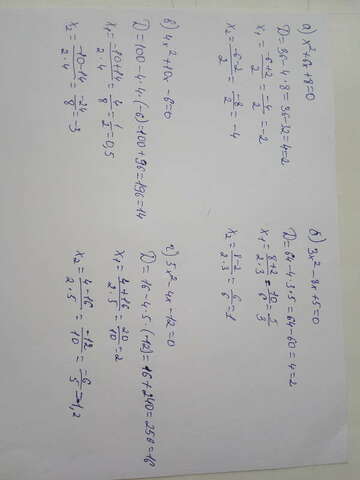 а) x²+6x+8=0
D=36-4·8=36-32=4=2
x₁=(-6+2)/2=-4/2=-2
x₂=(-6-2)/2=-8/2=-4
б) 3x²-8x+5=0
D=64-4·3·5=64-60=4=2
x₁=(8+2)/(2·3)=10/6=5/3
x₂=(8-2)/(2·3)=6/6=1
в) 4x²+10x-6=0
D=100-4·4·(-6)=100+96=196=14
x₁=(-10+14)/(2·4)=4/8=1/2=0,5
x₂=(-10-14)/(2·4)=-24/8=-3
г) 5x²-4x-12=0
D=16-4·5·(-12)=16+240=256=16
x₁=(4+16)/(2·5)=20/10=2
x₂=(4-16)/(2·5)=-12/10=-6/5=-1,2